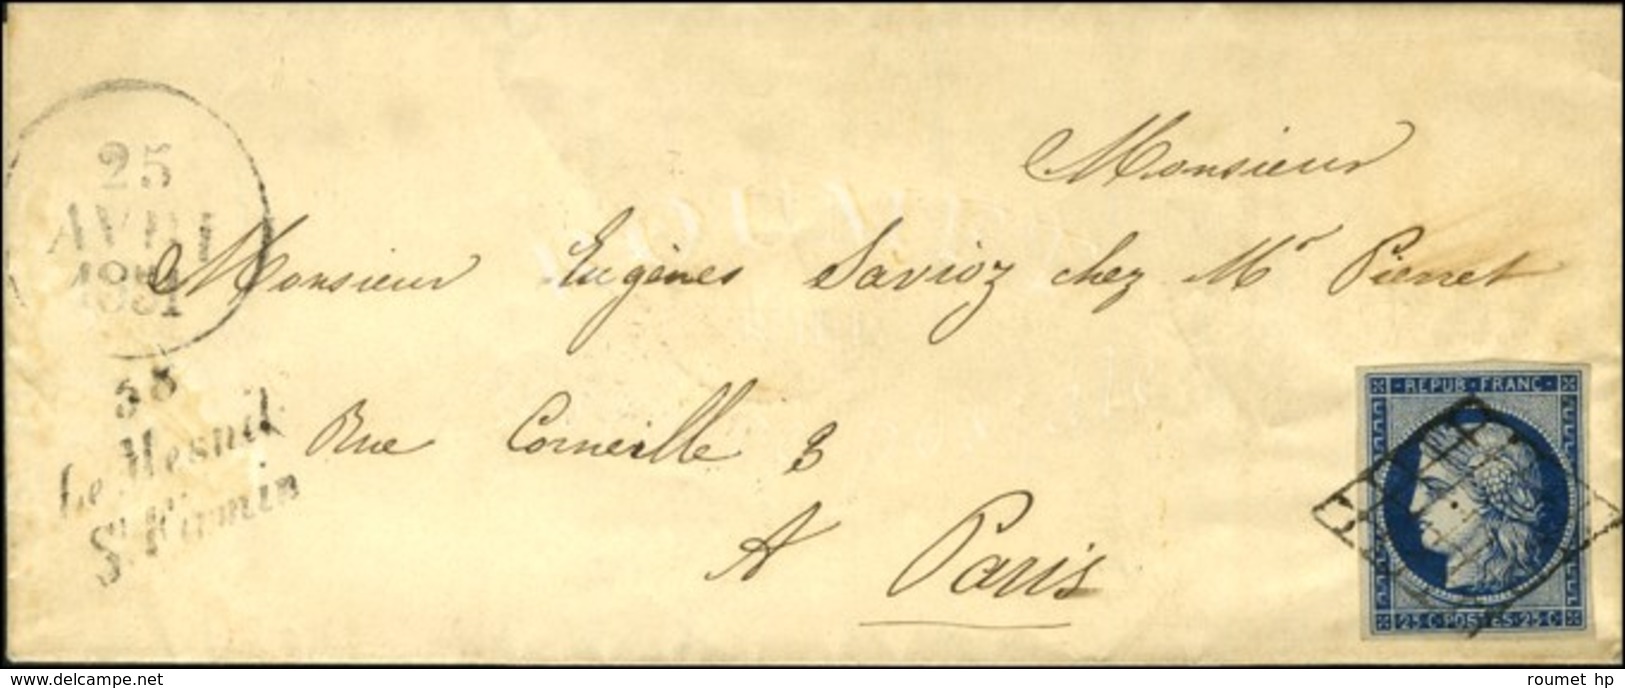 25
AVRIL
1851
58
Le Mesnil
St Firmin
Monsieur
Monsieur Eugènes Savioz chez Mr Pierret
Rue Corneille 3
A Paris
REPUB · FRANC ·
25 · C · POSTES · 25 · C ·
www.delcampe.net
roumet hp